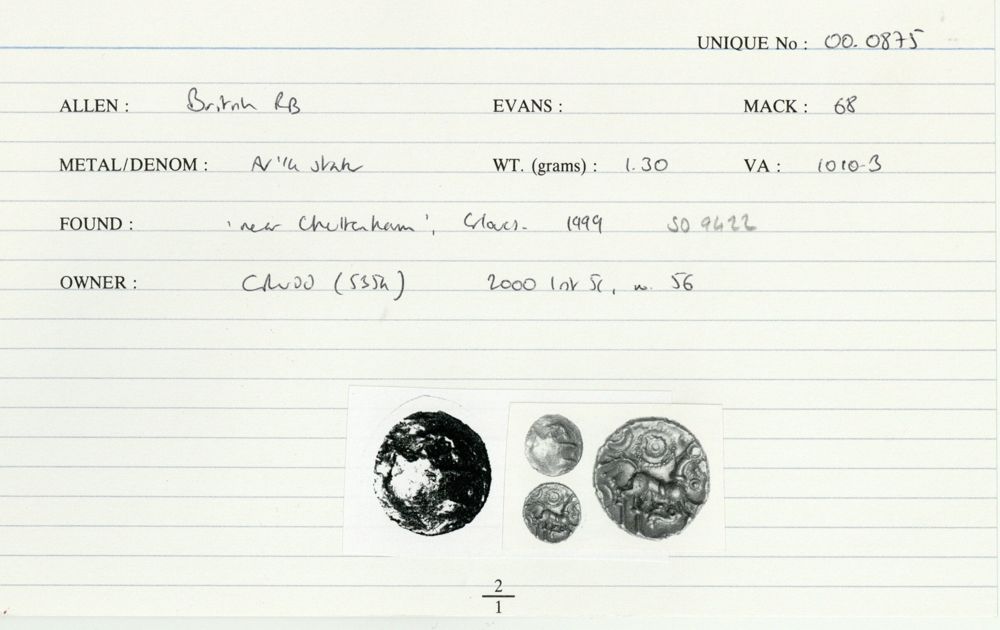 UNIQUE No : 00.0875
ALLEN : British RB EVANS : MACK : 68
METAL/DENOM : WT. (grams) : 1.30 VA : 1010-3
FOUND : 'near Cheltenham', Glocs. 1999 SO 9422
OWNER : 2000 56
2
1